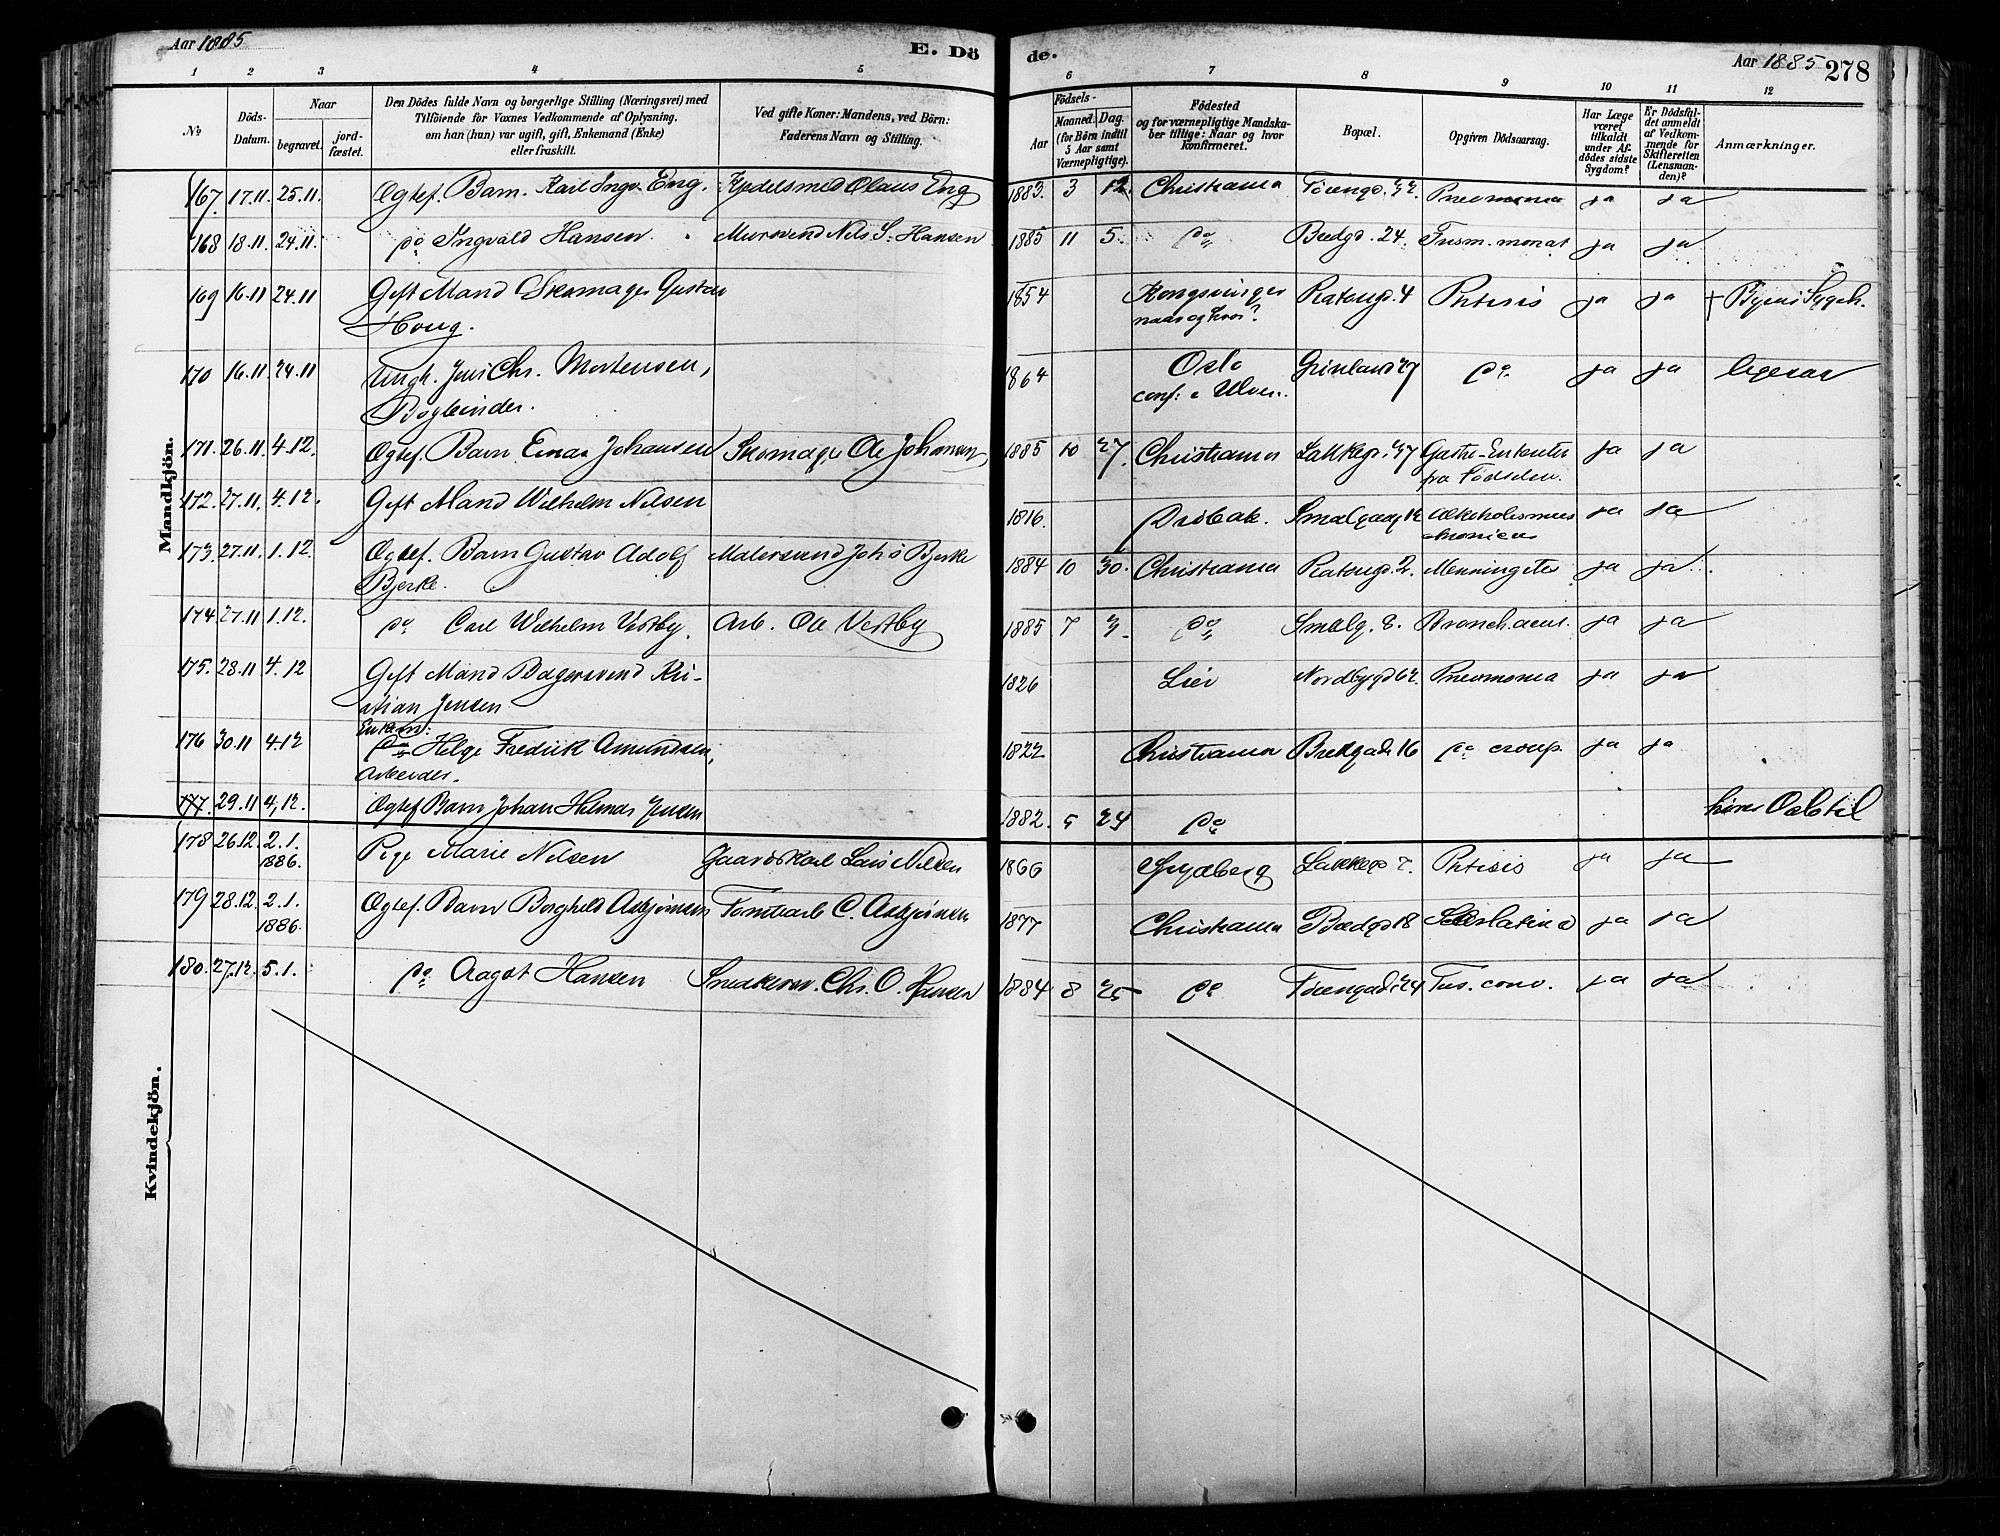 Aar 1885
E. Dö
de.
Aar 1885
278
1 2 3 4 5 6 7 8 9 10 11 12
No
Döds-Datum.
Naar
begravet.
jord-fæstet.
Den Dödes fulde Navn og borgerlige Stilling (Næringsvei) med
Tilföiende for Voxnes Vedkommende af Oplysning,
om han (hun) var ugift, gift, Enkemand (Enke)
eller fraskilt.
Ved gifte Koner: Mandens, ved Börn:
Faderens Navn og Stilling.
Födsels-
Aar
Maaned. Dag.
(for Börn indtil
5 Aar samt
Værnepligtige).
Födested
og for værnepligtige Mandska-
ber tillige: Naar og hvor
konfirmeret.
Bopæl.
Opgiven Dödsaarsag.
Har Læge
været
tilkaldt
under Af-
dödes sidste
Sygdom?
Er Dödsfal-
det anmeldt
af Vedkom-
mende for
Skifteretten
(Lensman-
den)?
Anmærkninger.
Mandkjön.
167. 17.11. 25.11. Ægtef. Barn. Karl Eng. Olaus Eng 1883. 3 12. Christiania Pneumonia ja ja
168 18.11. 24.11. do Ingvald Hansen. Mursvend Nils S. Hansen 1885 11 5. do Bredgd. 24. ja ja
169 16.11 24.11 Gift Mand Skomager Gustav 1854 Kongsvinger 4 Phtisis ja ja + Byens Sygeh.
Houg. naar og hvor?
170 16.11. 24.11 Ungk. Jens Chr. Mortensen, 1864 Oslo Grønland 27 do ja ja ligesaa
Bogbinder. conf:
171. 26.11. 4.12. Ægtef. Barn Einar Johansen Skomager Ole Johansen 1885 10 27. Christiania Lakkegd. 37 ja ja
fra Födselen.
172. 27.11. 4.12. Gift Mand Wilhelm Nilsen 1816. Dröbak. Smalgang 12 Alkoholismus ja ja
173. 27.11. 1.12. Ægtef. Barn Gustav Adolf Malersvend Johs Bjerke 1884 10 30. Christiania 2. Menningitis ja ja
Bjerke.
174 27.11 1.12. do Carl Wilhelm Vestby. Arb. Ole Vestby 1885 7 3. do Smalg. 8. Bronch. acut. ja ja
175. 28.11 4.12 Gift Mand Bagersvend Kri- 1826 Lier Nordbygd 62. Pneumonia ja ja
stian Jensen
176 30.11 4.12 Enkem: 1822 Christiania Bredgade 16 do croup. ja ja
do Helge Fredrik Amundsen,
Arbeider.
177. 29.11 4.12. Ægtef Barn Johan Hilmar Jensen 1882. 5 24 do hører Oslo til
Kvindekjön.
178 26.12. 2.1. 1886. Pige Marie Nilsen Gaardskarl Lars Nilsen 1866 Spydberg Lakkegd 7. Phtisis ja ja
179 28.12. 2.1. 1886. Ægtef. Barn Borghild Asbjörnsen Tomtearb C. Asbjörnsen 1877 Christiania Bredgd 18 Scarlatina ja ja
180. 27.12. 5.1. do Aagot Hansen Snedkersv. Chr. O. Hansen 1884 8 25 do 24 Tus. conv. ja ja